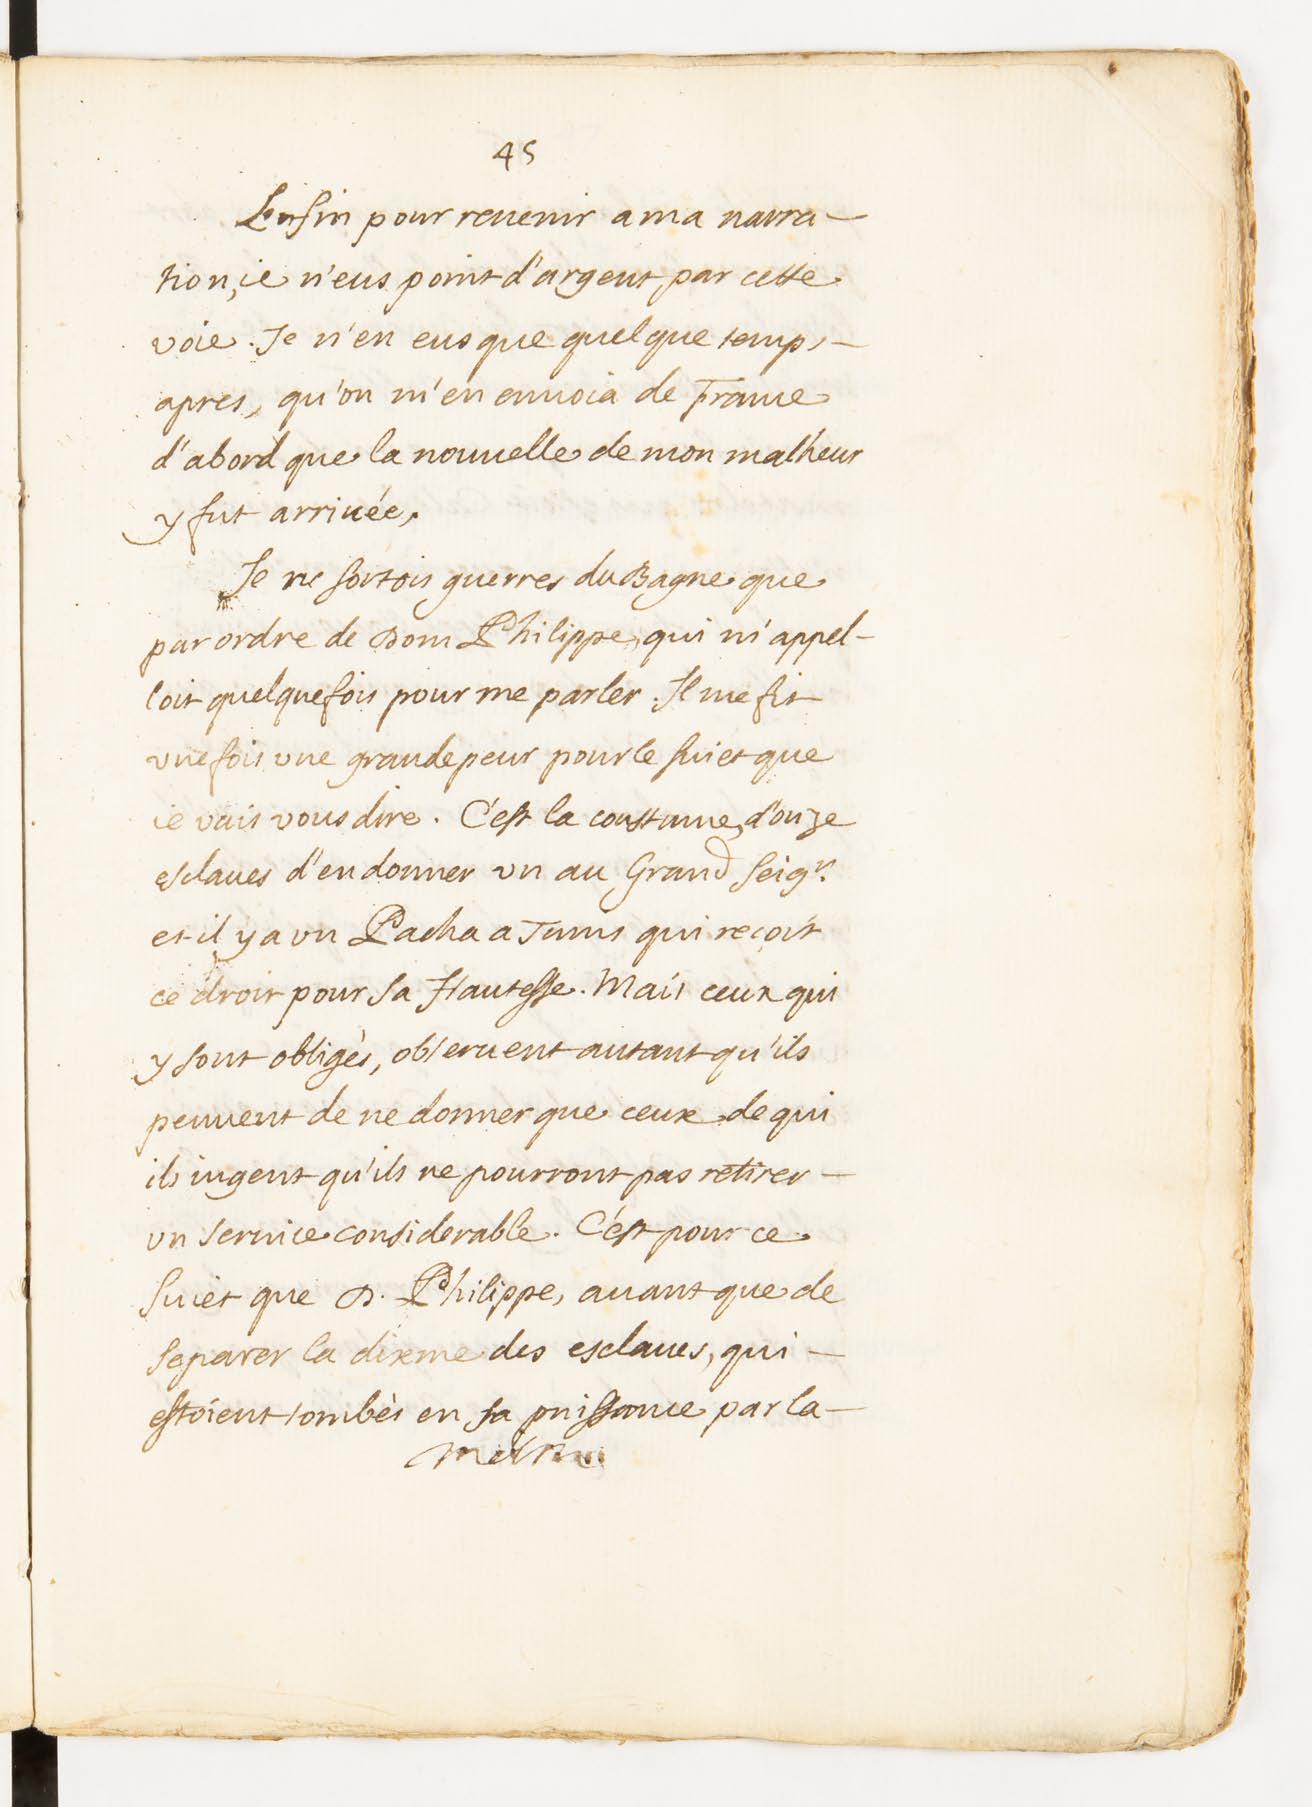 45
Enfin pour reuenir a ma narra-
tion, ie n'eus point d'argent, par cette
voie. Je n'en eus que quelque temps -
apres, qu'on m'en enuoia de France
d'abord que la nouuelle de mon malheur
y fut arriuée.
Je ne sortois guerres du Bagne que
par ordre de Dom Philippe, qui m'appel-
loit quelquefois pour me parler. Il me fit
vne fois vne grande peur pour le suiet que
ie vais vous dire. C'est la coustume, d'onze
esclaues d'en donner vn au Grand Seigr.
et il y a vn Pacha a Tunis qui reçoit
ce droit pour sa Hautesse. Mais ceux qui
y sont obligés, obseruent autant qu'ils
peuuent de ne donner que ceux de qui
ils iugent qu'ils ne pourront pas retirer -
vn seruice considerable. C'est pour ce
suiet que D. Philippe, auant que de
separer la dixme des esclaues, qui -
estoient tombés en sa puissance par la -